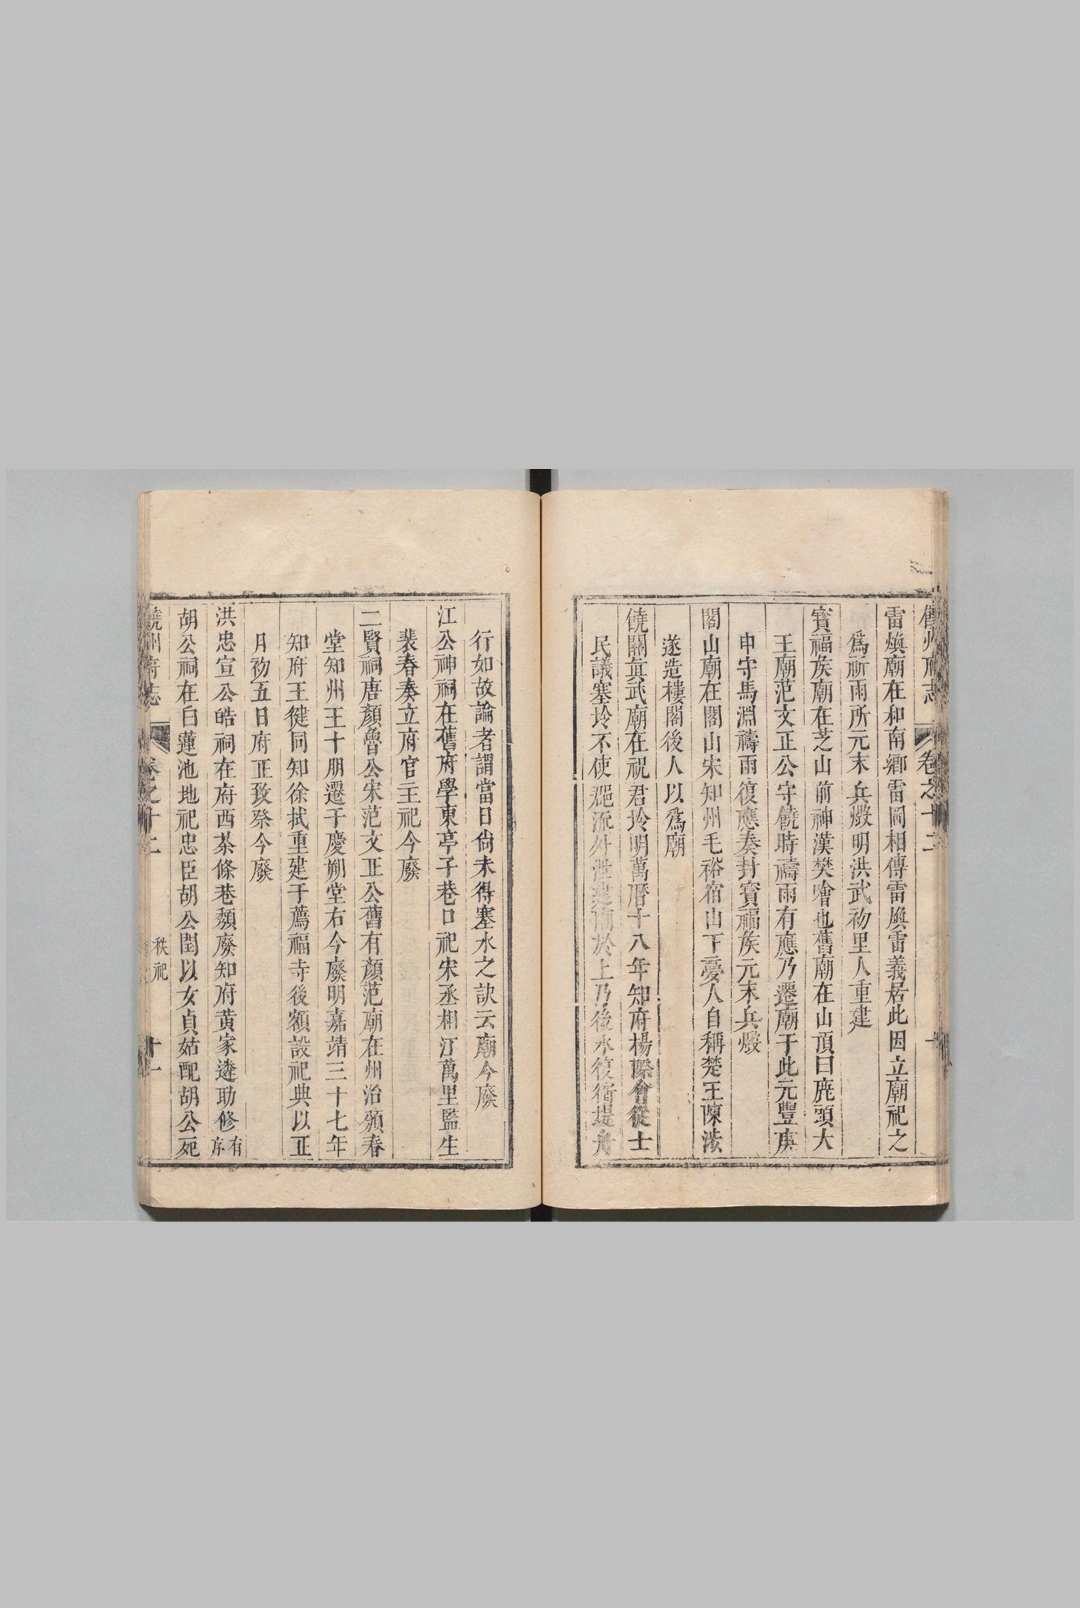 饒州府志 卷之十二
雷煥廟在和南鄉雷岡相傳雷煥雷義居此因立廟祀之
爲祈雨所元末兵燬明洪武初里人重建
寳福矦廟在芝山前神漢樊噲也舊廟在山頂曰鹿頭大
王廟范文正公守饒時禱雨有應乃遷廟于此元豐庚
申守馬淵禱雨復應奏封寳福矦元末兵燬
閣山廟在閣山宋知州毛裕宿山下夢人自稱楚王陳渉
遂造樓閣後人以爲廟
饒關眞武廟在祝君坽明萬曆十八年知府楊際會從士
民議塞坽不使 流外 於上乃後水復衝堤舟
行如故論者謂當日尙未得塞水之訣云廟今廢
江公神祠在舊府學東亭子巷口祀宋丞相江萬里監生
裴春奏立府官主祀今廢
二賢祠唐顏魯公宋范文正公舊有顏范廟在州治頖春
堂知州王十朋遷于慶朔堂右今廢明嘉靖三十七年
知府王健同知徐拭重建于薦福寺後額設祀典以正
月初五日府正致祭今廢
洪忠宣公皓祠在府西茶條巷頹廢知府黄家遴助修有序
胡公祠在白蓮池地祀忠臣胡公閏以女貞姑配胡公死
饒州府志 卷之十二 秩祀 十一